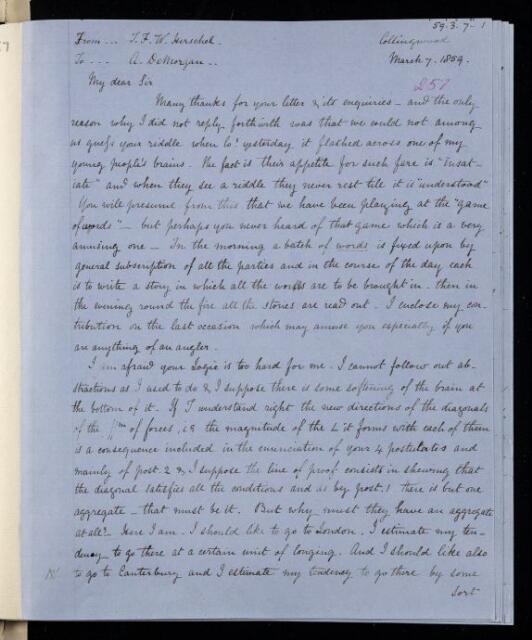 59.3.7-1
From --- J. F. W. Herschel.
Collingwood
To --- A. DeMorgan..
March 7. 1859.
257
My dear Sir
Many thanks for your letter & its enquiries – and the only
reason why I did not reply forthwith was that we could not among
us guess your riddle when lo! yesterday it flashed across one of my
young people's brains. The fact is their appetite for such fare is "Insat-
iate" and when they see a riddle they never rest till it is "understood"
You will presume from this that we have been playing at the "game
of words" – but perhaps you never heard of that game which is a very
amusing one – In the morning a batch of words is fixed upon by
general subscription of all the parties and in the course of the day each
is to write a story in which all the words are to be brought in. then in
the evening round the fire all the stories are read out – I enclose my con-
tribution on the last occasion which may amuse you especially if you
are anything of an angler.
I am afraid your Logic is too hard for me. I cannot follow out ab-
stractions as I used to do & I suppose there is some softening of the brain at
the bottom of it. If I understand right the new directions of the diagonals
of the //m of forces, i e the magnitude of the ∠ it forms with each of them
is a consequence included in the enunciation of your 4 postulates and
mainly of post. 2 & I suppose the line of proof consists in shewing that
the diagonal satisfies all the conditions and as by post. 1 there is but one
aggregate – that must be it. But why must they have an aggregate
at all? – Here I am. I should like to go to London. I estimate my ten-
dency to go there at a certain unit of longing. And I should like also
to go to Canterbury and I estimate my tendency to go there by some
sort